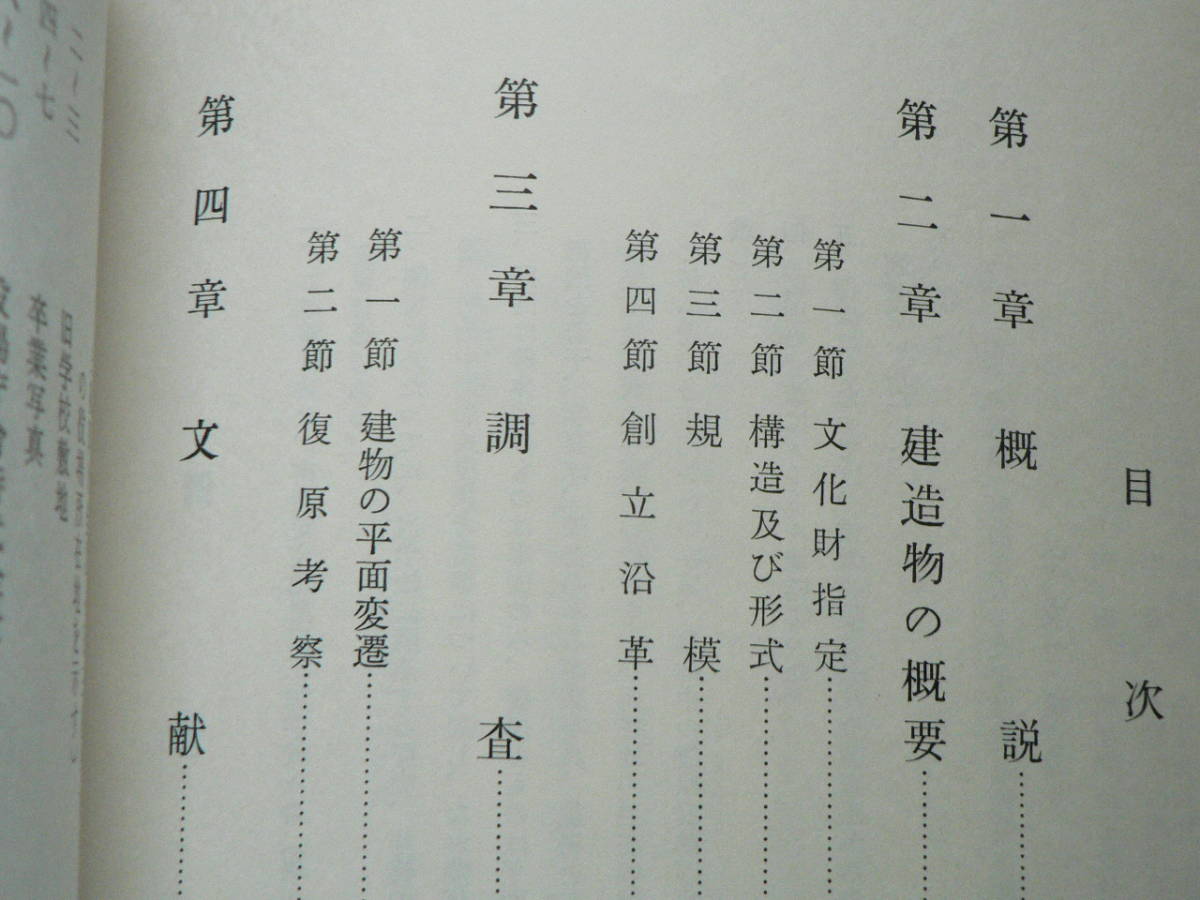 目次
第一章 概説
第二章 建造物の概要
第一節 文化財指定
第二節 構造及び形式
第三節 規模
第四節 創立沿革
第三章 調査
第一節 建物の平面変遷
第二節 復原考察
第四章 文献
旧学校敷地
卒業写真
二~三
四~七